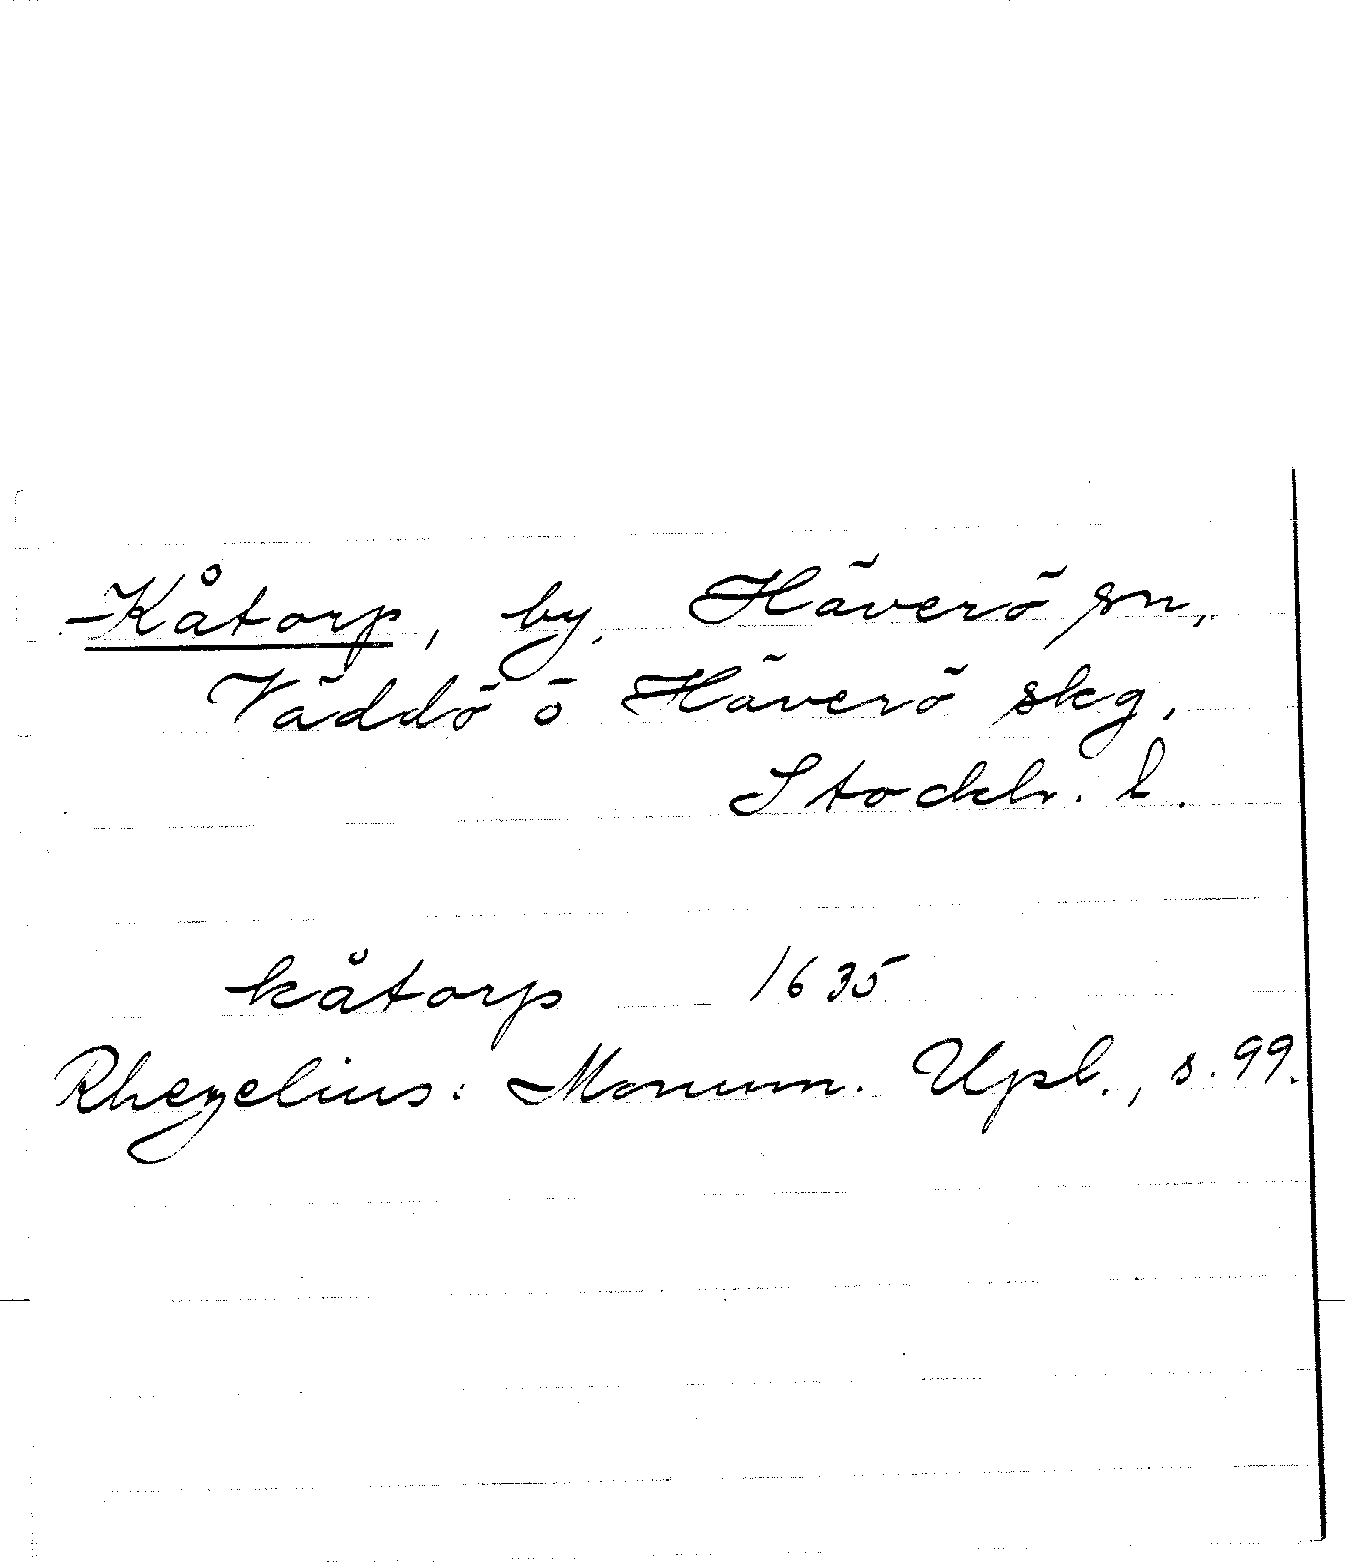 Kåtorp, by, Häverö sn,
Väddö o Häverö skg,
Stockh. l.
kåtorp 1635
Rhezelius: Monum. Upl., s. 99.